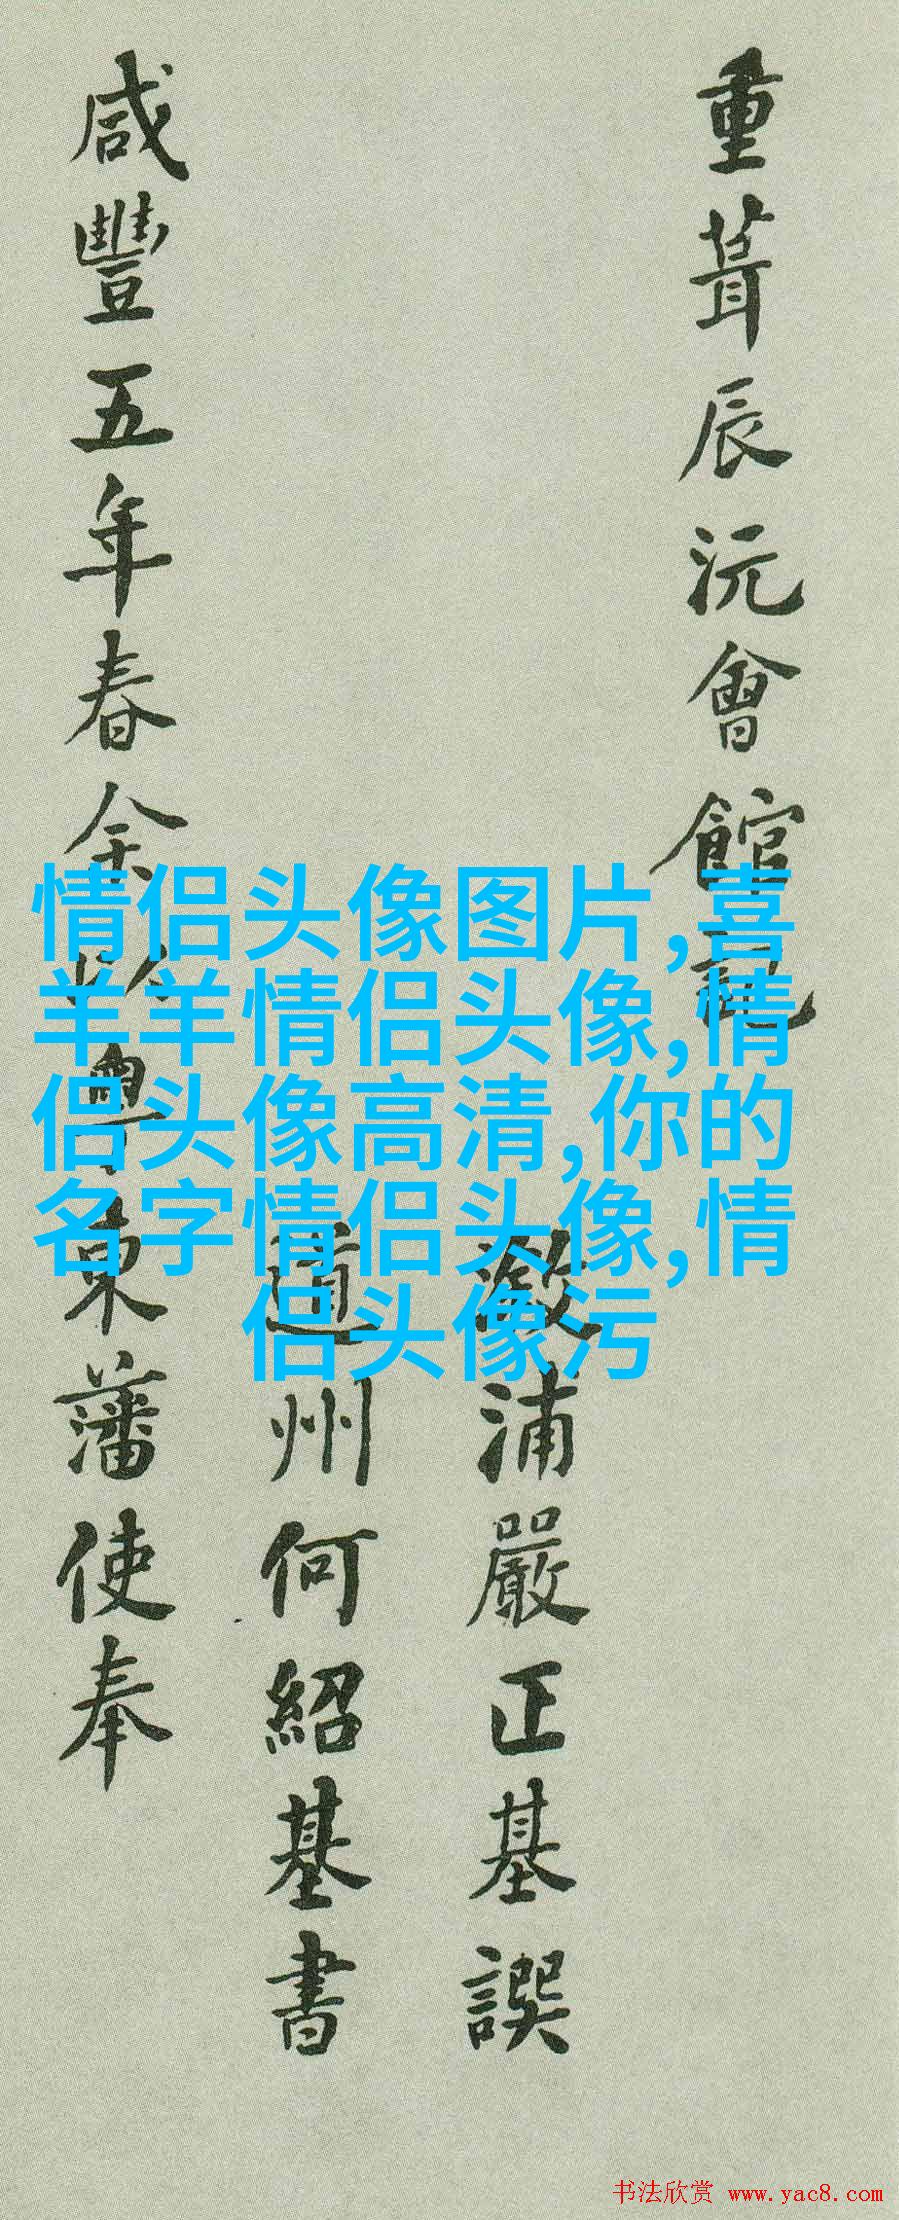 重葺辰沅會館記
溆浦嚴正基譔
道州何紹基書
咸豐五年春余以粤東藩使奉
情侣头像图片,喜
羊羊情侣头像,情
侣头像高清,你的
名字情侣头像,情
侣头像污
书法欣赏 www.yac8.com